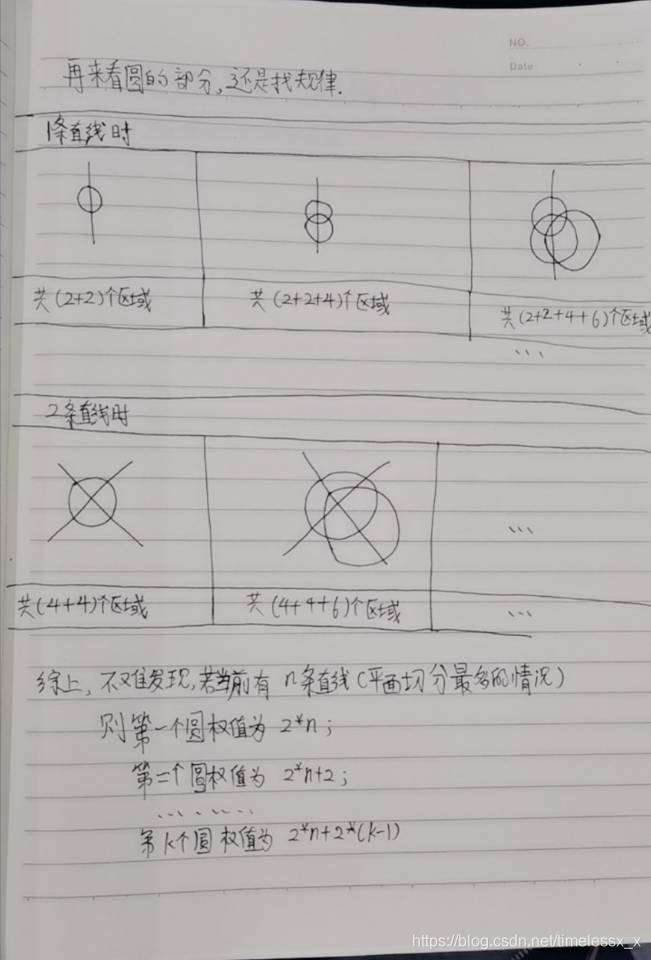 NO.
Date
再来看圆的部分,还是找规律.
1条直线时
共(2+2)个区域
共(2+2+4)个区域
共(2+2+4+6)个区域
...
2条直线时
...
共(4+4)个区域
共(4+4+6)个区域
...
综上,不难发现,若当前有n条直线(平面切分最多的情况)
则第一个圆权值为2*n;
第二个圆权值为2*n+2;
......
第k个圆权值为2*n+2*(k-1)
https://blog.csdn.net/timelessx_x